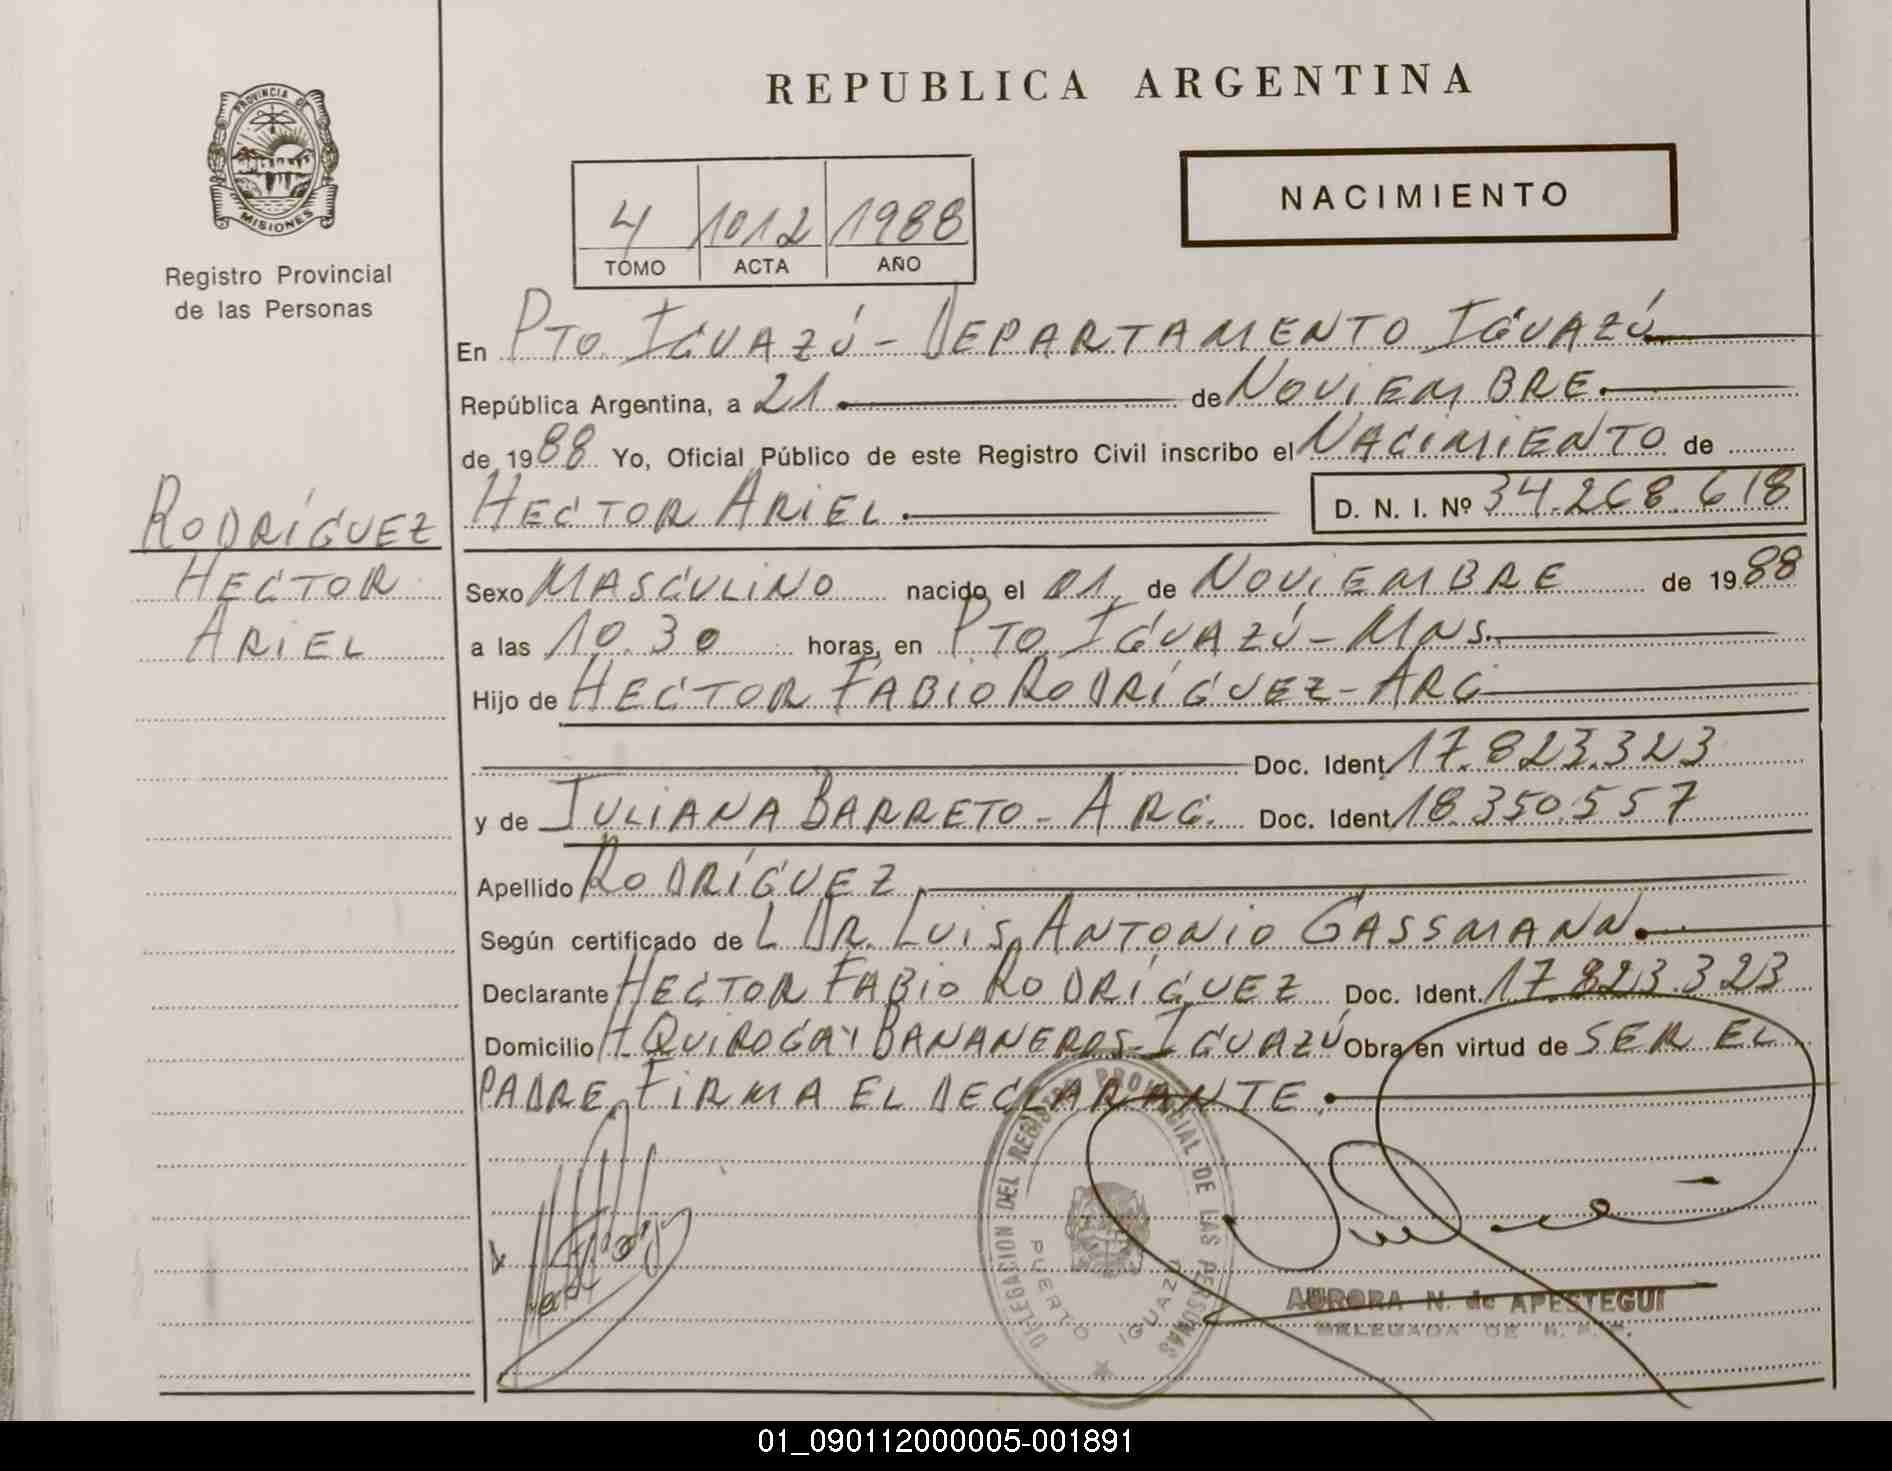 REPUBLICA ARGENTINA
PROVINCIA DE
MISIONES
Registro Provincial
de las Personas
4 1012 1988
TOMO ACTA AÑO
NACIMIENTO
En PTO. IGUAZÚ - DEPARTAMENTO IGUAZÚ
República Argentina, a 21 de NOVIEMBRE.
de 1988 Yo, Oficial Público de este Registro Civil inscribo el NACIMIENTO de
HECTOR ARIEL. D. N. I. Nº 34.268.618
RODRÍGUEZ
HECTOR
ARIEL
Sexo MASCULINO nacido el 01 de NOVIEMBRE de 1988
a las 10.30 horas, en PTO. IGUAZÚ - MNS.
Hijo de HECTOR FABIO RODRÍGUEZ - ARG
Doc. Ident. 17.823.323
y de JULIANA BARRETO - ARG. Doc. Ident. 18.350.557
Apellido RODRÍGUEZ
Según certificado de L DR. LUIS ANTONIO GASSMANN.
Declarante HECTOR FABIO RODRÍGUEZ Doc. Ident. 17.823.323
Domicilio H. QUIROGA Y BANANEROS - IGUAZÚ Obra en virtud de SER EL
PADRE. FIRMA EL DECLARANTE.
DELEGACION DEL REGISTRO PROVINCIAL DE LAS PERSONAS
PUERTO IGUAZU
AURORA N. de APESTEGUI
DELEGADA DE R. P. P.
01_090112000005-001891